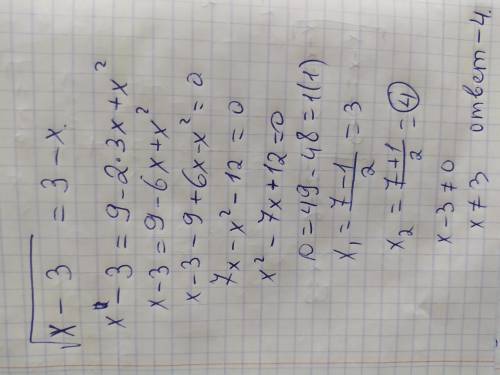 √x − 3 = 3 − x
x − 3 = 9 − 2·3x + x²
x − 3 = 9 − 6x + x²
x − 3 − 9 + 6x − x² = 0
7x − x² − 12 = 0
x² − 7x + 12 = 0
D = 49 − 48 = 1(1)
x₁ = (7 − 1)/2 = 3
x₂ = (7 + 1)/2 = 4
x − 3 ≠ 0
x ≠ 3 ответ − 4.